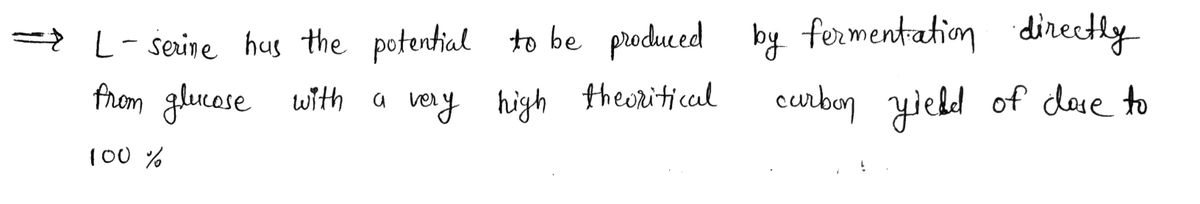 ⇒ L - serine has the potential to be produced by fermentation directly
from glucose with a very high theoritical carbon yield of close to
100 %